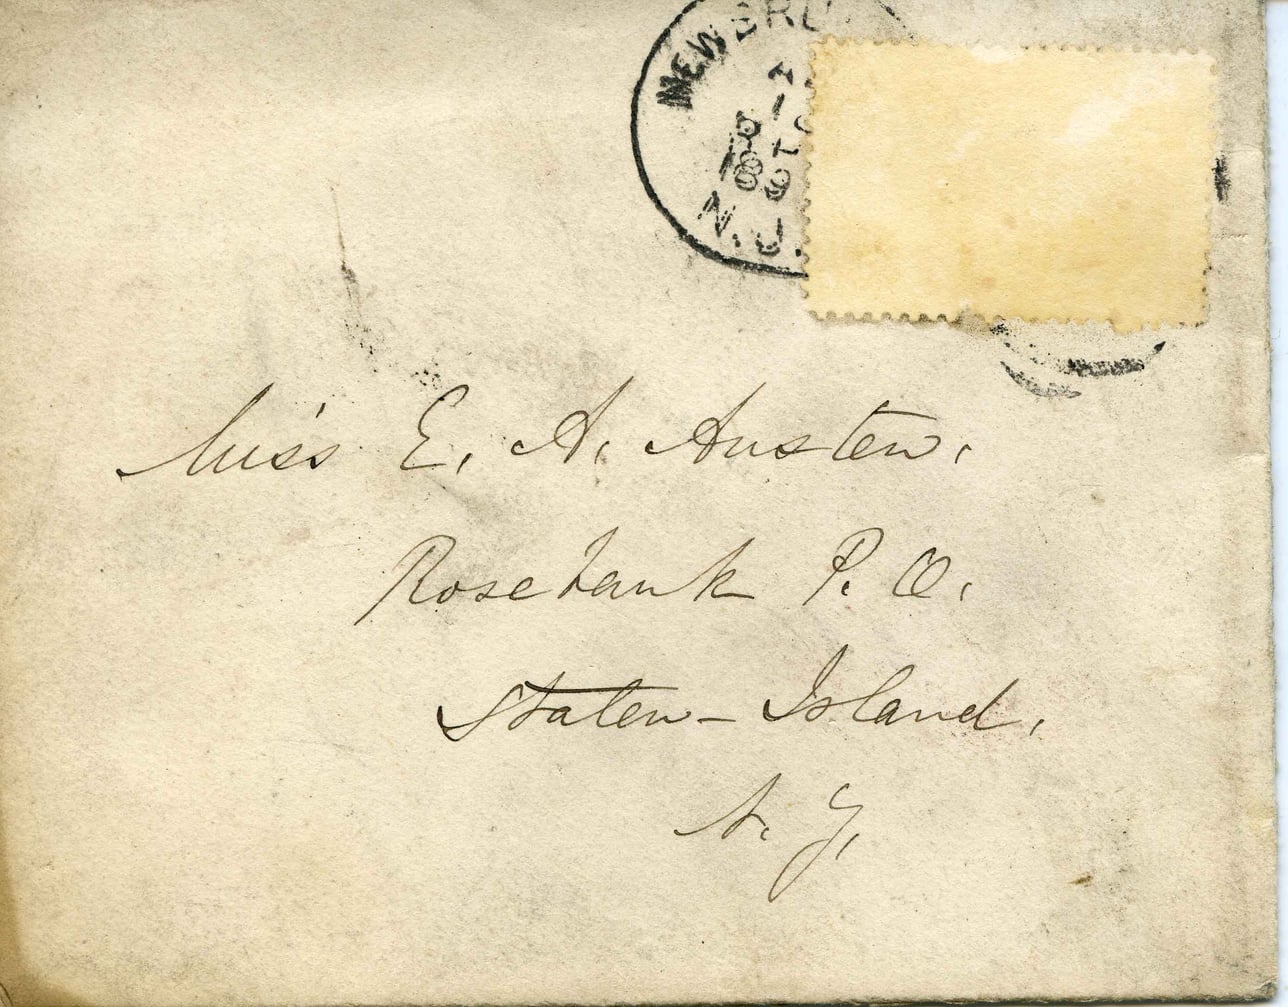 NEWBRU
N.J.
Miss E. A. Austen,
Rosebank P. O.
Staten-Island,
N. Y,